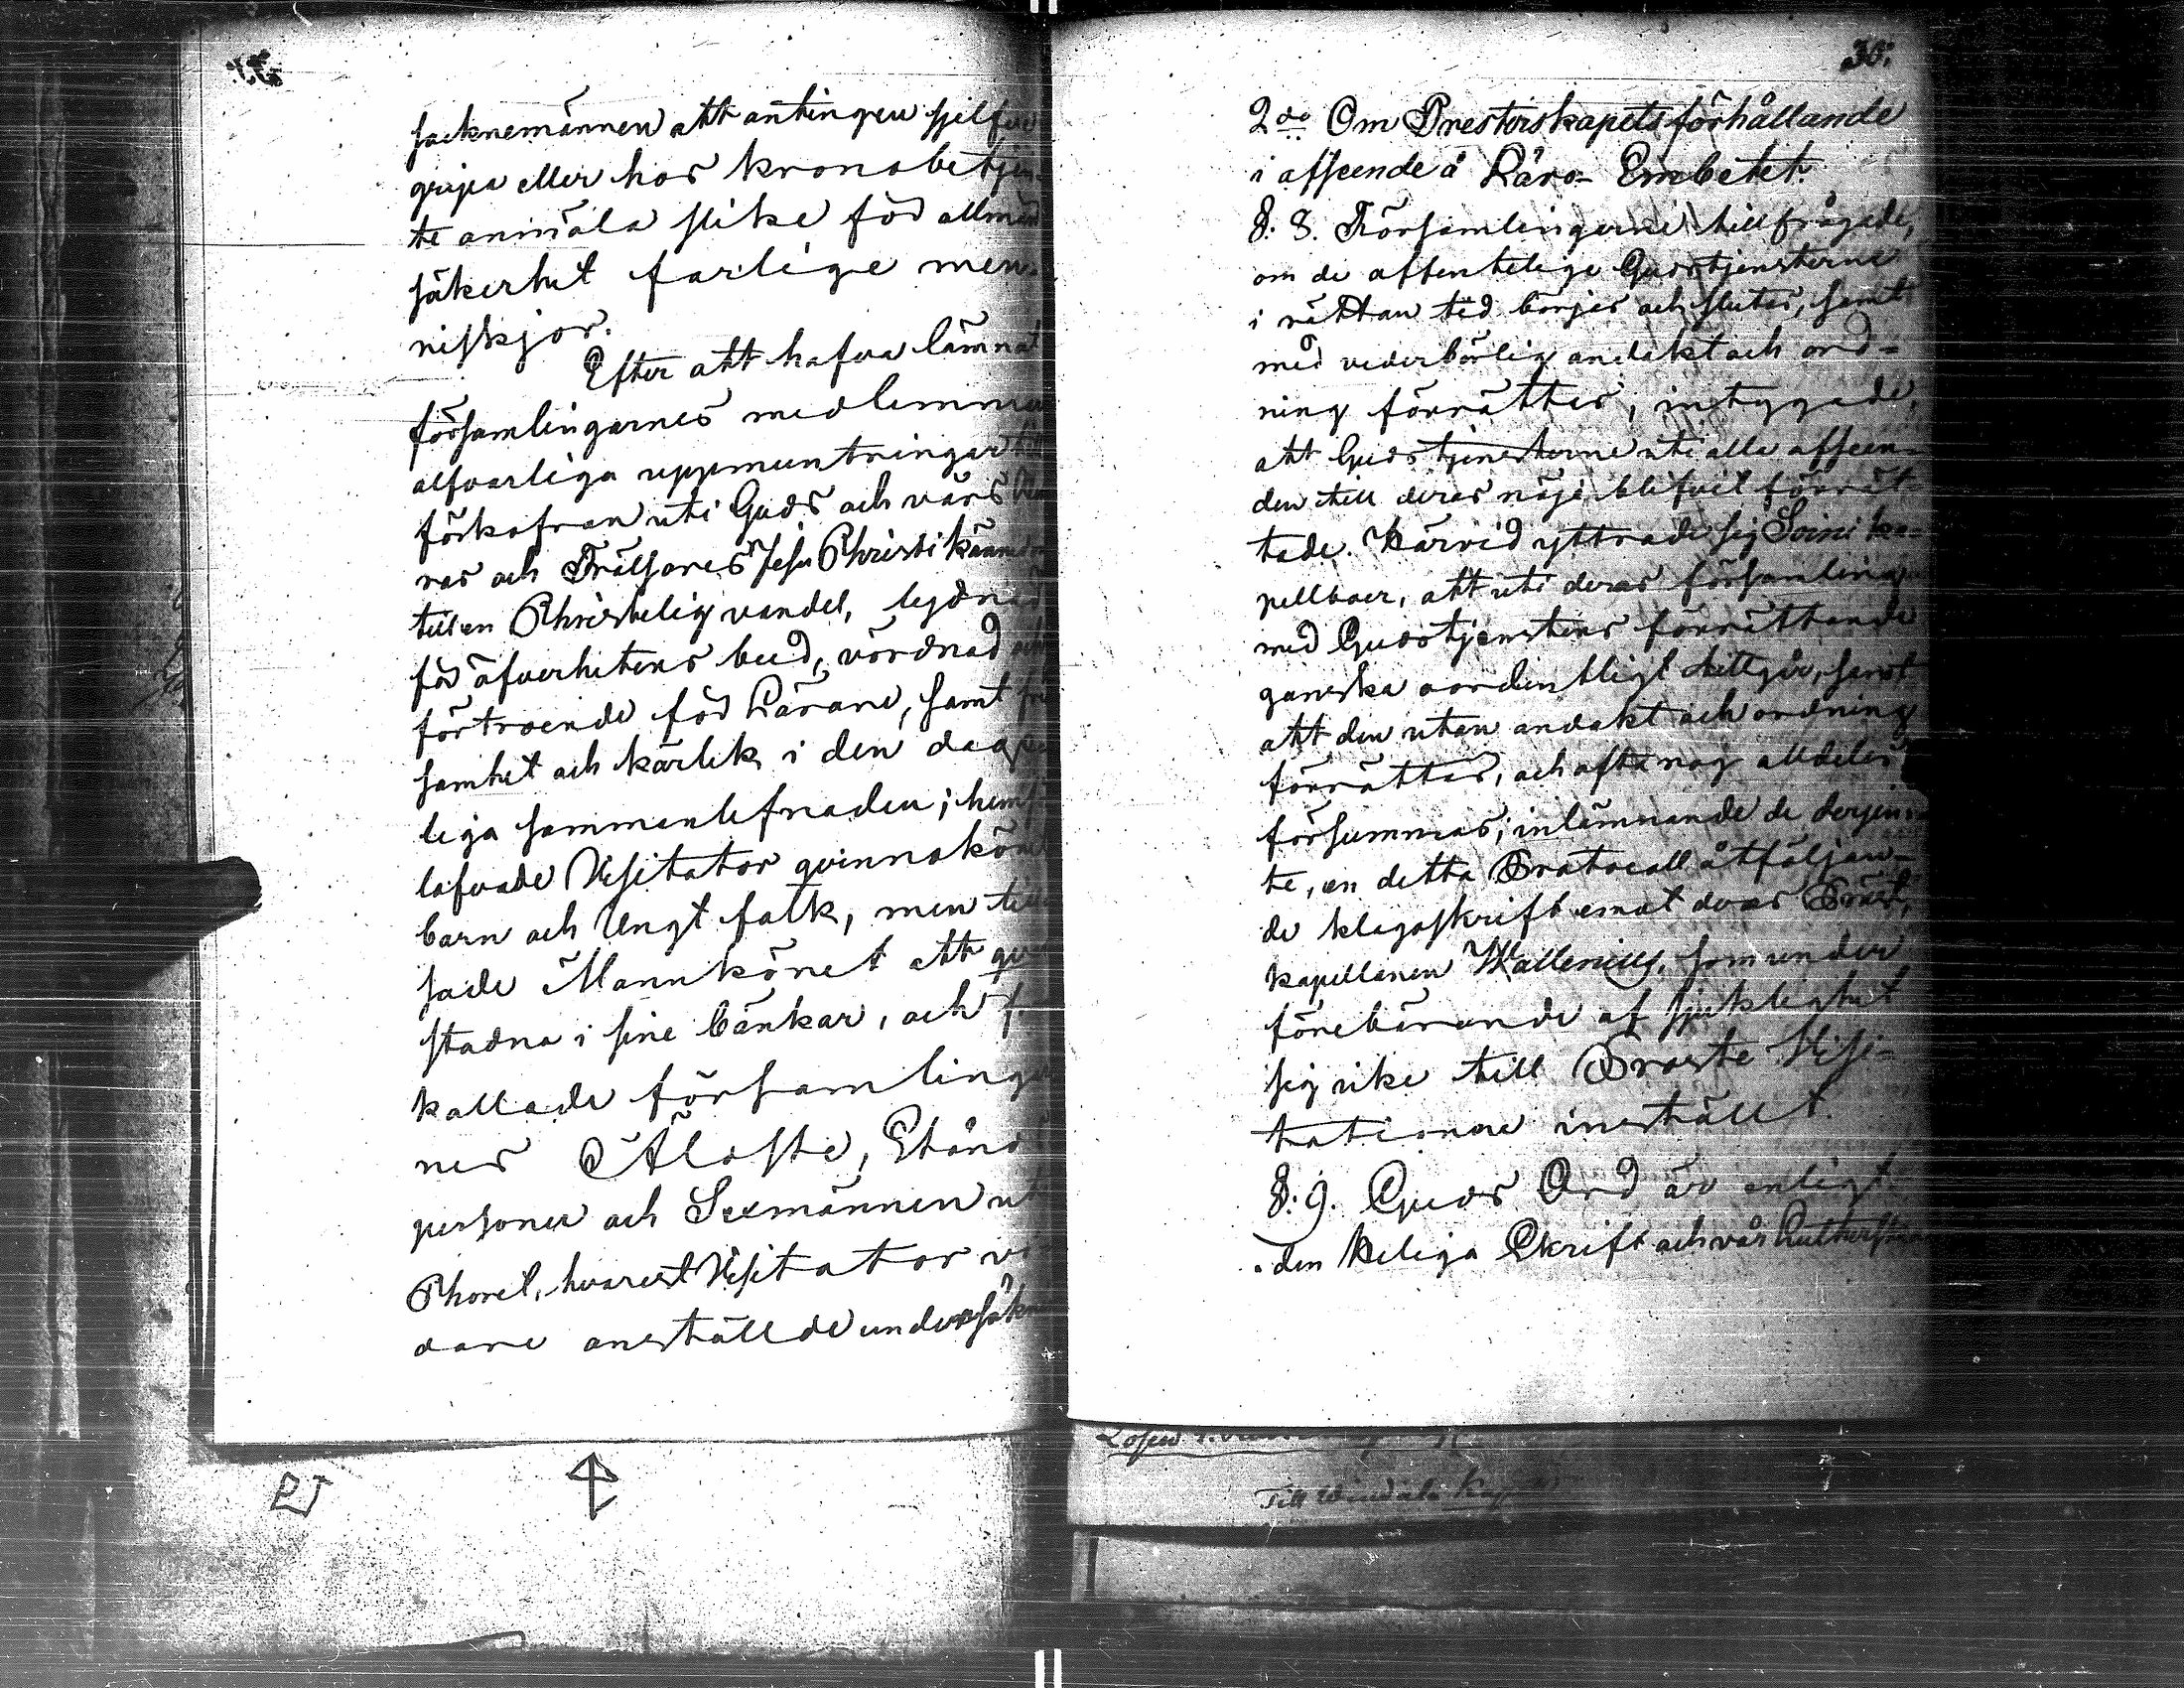 socknemännen att antingen sjelfve
gripa eller hos kronobetjen-
te anmäla slike för allmän
säkerhet farlige men-
niskjor.
Efter att hafva lämnat
församlingarnes medlemmar
alfvarliga uppmuntringar till
förkofran uti Guds och vårs
ras och Frälsares Jesu Christi kännedom
till en Christelig vandel, lydnad
för öfverhetens bud, vördnad och
förtroende för Lärare, samt
samhet och kärlek i den dag
liga sammanlefnaden; hem-
lofvade Visitator qvinnokönet
barn och Ungt folk, men till-
sade Mannkönet att qvar
stadna i sine bänkar, och
kallade församlingar
nes Äldste, Stånds
personer och Sexmännen uti
Choret, hvarest Visitator vi-
dare anställde undersökning
30.
2do Om Presterskapets förhållande
i afseende å Läro-Embetet.
§. 8. Församlingarne tillfrågade,
om de offentelige Gudstjensterne
i rättan tid börjas och slutas, samt
med vederbörlig andakt och ord-
ning förrättas, intygade,
att Gudstjensterne uti alla afseen-
den till deras nöje blifvit förrät-
tade. Härvid yttrade sig Soini ka-
pellboer, att uti deras församling
med Gudstjenstens förrättande
ganska oordentligt tillgår, samt
att den utan andakt och ordning
förrättas, och ofta nog alldeles
försummas; inlämnande de derjem-
te, en detta Protocoll åtföljan-
de klagoskrift emot deras Präst,
kapellanen Wallenius, som under
föreburande af sjuklighet
sig icke till Proste Visi-
tationen inställt.
§. 9. Guds Ord är enligt
den Heliga Skrift och vår Lutherska
Till Windala